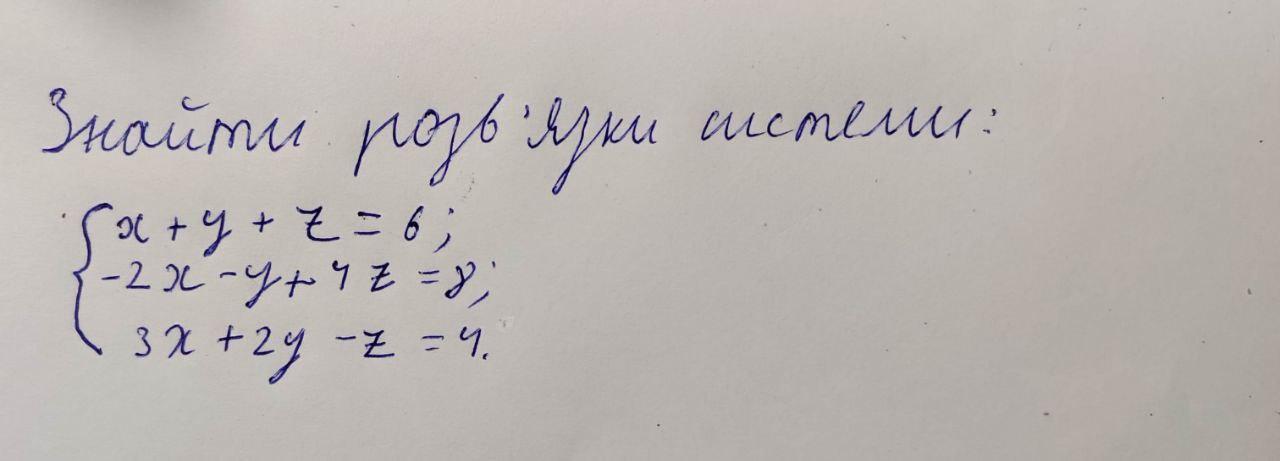 Знайти розв'язки системи:
x + y + z = 6;
-2x - y + 4z = 8;
3x + 2y - z = 4.